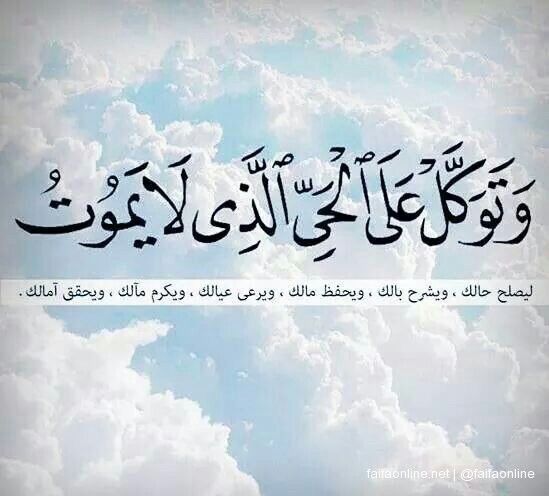 وَتَوَكَّلْ عَلَى ٱلْحَىِّ ٱلَّذِى لَا يَمُوتُ
ليصلح حالك ، ويشرح بالك ، ويحفظ مالك ، ويرعى عيالك ، ويكرم مآلك ، ويحقق آمالك .
faifaonline.net | @faifaonline